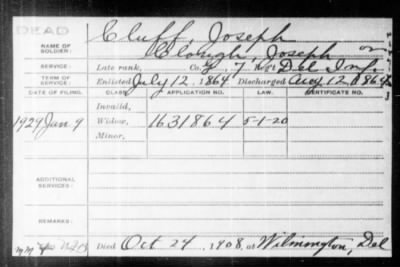 DEAD
NAME OF SOLDIER: Cluff, Joseph
Clough, Joseph or
SERVICE: Late rank, Co. 7" Reg't Del Inf.
TERM OF SERVICE: Enlisted July 12, 1864 Discharged Aug 12, 1864
DATE OF FILING. CLASS. APPLICATION NO. LAW. CERTIFICATE NO.
Invalid,
1929 Jan 9 Widow, 1631864 5-1-20
Minor,
ADDITIONAL SERVICES:
REMARKS:
Died Oct 24, 1908, at Wilmington, Del